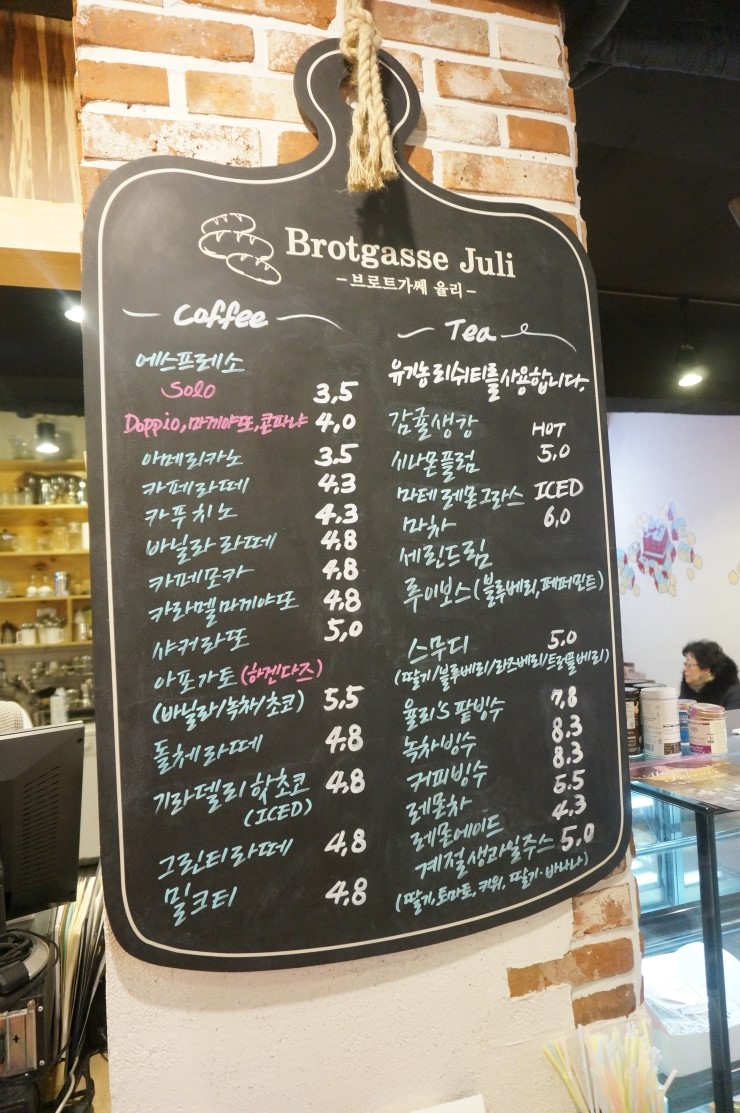 Brotgasse Juli
- 브로트가쎄 율리 -
Coffee
에스프레소
Solo 3,5
Doppio, 마끼야또, 콘파냐 4,0
아메리카노 3,5
카페라떼 4,3
카푸치노 4,3
바닐라 라떼 4,8
카페모카 4,8
카라멜마끼야또 4,8
샤커라또 5,0
아포가토 (하겐다즈)
(바닐라/녹차/초코) 5,5
돌체라떼 4,8
기라델리 핫초코 4,8
(ICED)
그린티라떼 4,8
밀크티 4,8
Tea
유기농 리쉬티를 사용합니다.
감귤생강 HOT
시나몬플럼 5,0
마테 레몬그라스 ICED
마차 6,0
세린드림
루이보스 (블루베리, 페퍼민트)
스무디 5,0
(딸기/블루베리/라즈베리/트러플베리)
율리's 팥빙수 7,8
녹차빙수 8,3
커피빙수 8,3
레몬차 5,5
레몬에이드 4,3
계절생과일주스 5,0
(딸기, 토마토, 키위, 딸기·바나나)